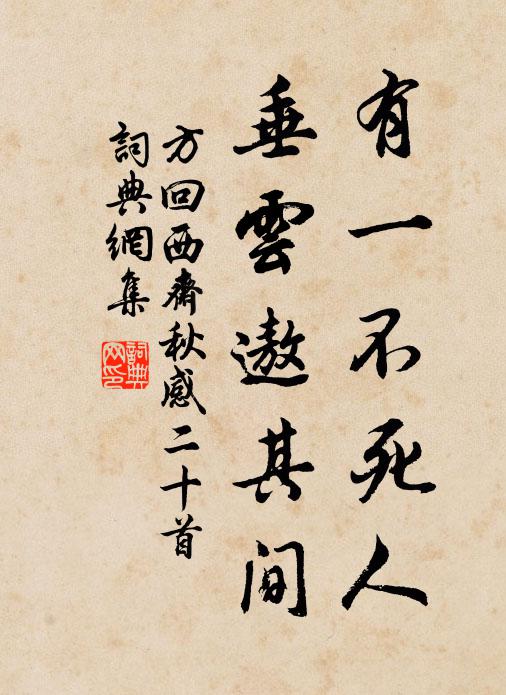 有一不死人
垂雲遨其间
方回西齋秋感二十首
詞典網集
詞典網印